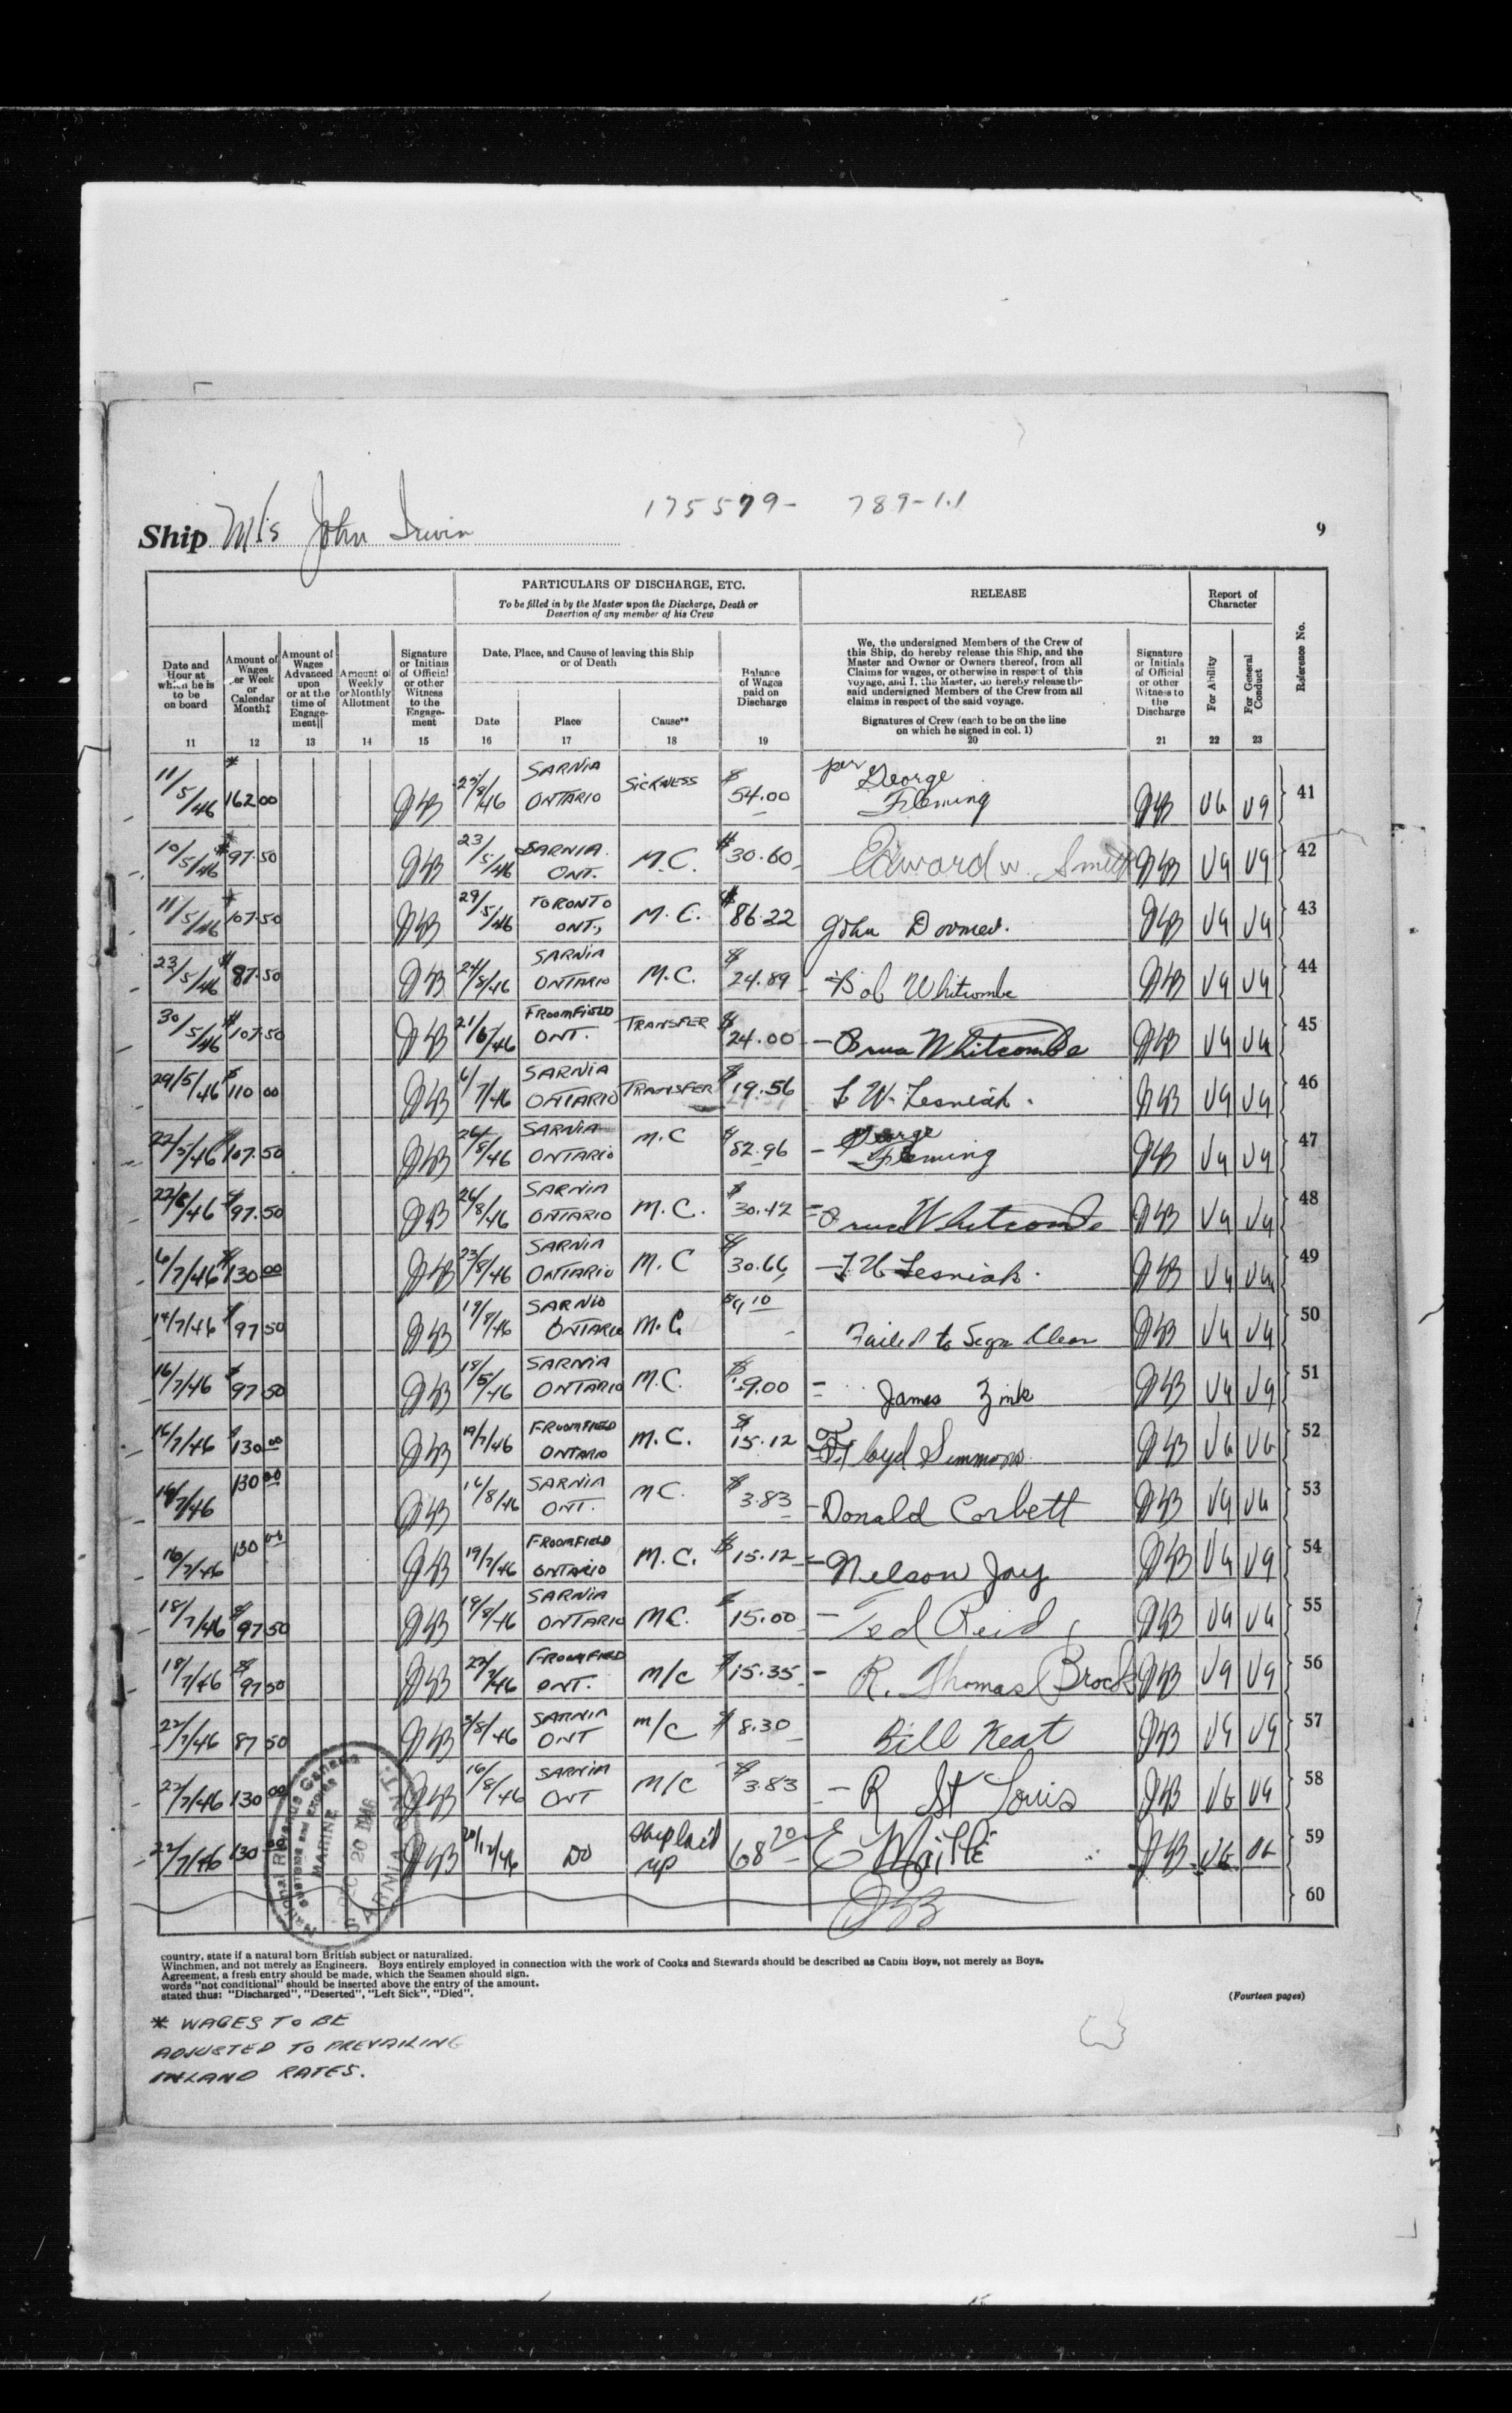 175579- 789-1.1
Ship M/s John Irwin
9
PARTICULARS OF DISCHARGE, ETC.
To be filled in by the Master upon the Discharge, Death or
Desertion of any member of his Crew
RELEASE
Report of
Character
Reference No.
Date and
Hour at
which he is
to be
on board
11
Amount of
Wages
per Week
or
Calendar
Month‡
12
Amount of
Wages
Advanced
upon
or at the
time of
Engage-
ment||
13
Amount of
Weekly
or Monthly
Allotment
14
Signature
or Initials
of Official
or other
Witness
to the
Engage-
ment
15
Date, Place, and Cause of leaving this Ship
or of Death
Date
16
Place
17
Cause**
18
Balance
of Wages
paid on
Discharge
19
We, the undersigned Members of the Crew of
this Ship, do hereby release this Ship, and the
Master and Owner or Owners thereof, from all
Claims for wages, or otherwise in respect of this
voyage, and I, the Master, do hereby release the
said undersigned Members of the Crew from all
claims in respect of the said voyage.
Signatures of Crew (each to be on the line
on which he signed in col. 1)
20
Signature
or Initials
of Official
or other
Witness to
the
Discharge
21
For Ability
22
For General
Conduct
23
11/5/46 * 162 00 SARNIA ONTARIO SICKNESS $54.00 per George Fleming VG VG 41
10/5/46 * $97.50 23/5/46 SARNIA ONT. M.C. $30.60 Edward W. Smith VG VG 42
11/5/46 * 107.50 29/5/46 TORONTO ONT., M.C. $86.22 John VG VG 43
23/5/46 $87.50 24/8/46 SARNIA ONTARIO M.C. $24.89 Bob Whitcombe VG VG 44
30/5/46 $107.50 21/6/46 FROOMFIELD ONT. TRANSFER $24.00 - Whitcombe VG VG 45
29/5/46 $110 00 6/7/46 SARNIA ONTARIO TRANSFER $19.56 W. Lesniak. VG VG 46
$107.50 SARNIA ONTARIO M.C $82.96 - George Fleming VG VG 47
$97.50 26/8/46 SARNIA ONTARIO M.C. $30.42 Whitcombe VG VG 48
6/7/46 $130 00 23/8/46 SARNIA ONTARIO M.C $30.66 Lesniak. VG VG 49
14/7/46 $97 50 19/8/46 SARNIA ONTARIO M.C. $9 10 Failed to Sign Clear VG VG 50
16/7/46 $97 50 SARNIA ONTARIO M.C. 9.00 - James Zink VG VG 51
16/7/46 $130 00 19/7/46 FROOMFIELD ONTARIO M.C. $15.12 Floyd Simmons VG VG 52
16/7/46 130 00 16/8/46 SARNIA ONT. M.C. $3.83 - Donald Corbett VG VG 53
16/7/46 130 00 19/7/46 FROOMFIELD ONTARIO M.C. $15.12 - Nelson Jay VG VG 54
18/7/46 $97 50 19/8/46 SARNIA ONTARIO M.C. $15.00 - Ted Reid VG VG 55
18/7/46 $97 50 22/7/46 FROOMFIELD ONT. M/C $15.35 - R. Thomas Brock VG VG 56
22/7/46 87 50 5/8/46 SARNIA ONT M/C $8.30 Bill Keat VG VG 57
22/7/46 130 00 16/8/46 SARNIA ONT M/C $3.83 - R St Louis VG VG 58
22/7/46 130 00 20/12/46 DO Ship laid up 68 20 E Maillé VG VG 59
60
National Revenue Canada
Customs and Excise
MARINE
DEC 20 1946
SARNIA ONT.
country, state if a natural born British subject or naturalized.
Winchmen, and not merely as Engineers. Boys entirely employed in connection with the work of Cooks and Stewards should be described as Cabin Boys, not merely as Boys.
Agreement, a fresh entry should be made, which the Seamen should sign.
words "not conditional" should be inserted above the entry of the amount.
stated thus: "Discharged", "Deserted", "Left Sick", "Died".
(Fourteen pages)
* WAGES TO BE
ADJUSTED TO PREVAILING
INLAND RATES.